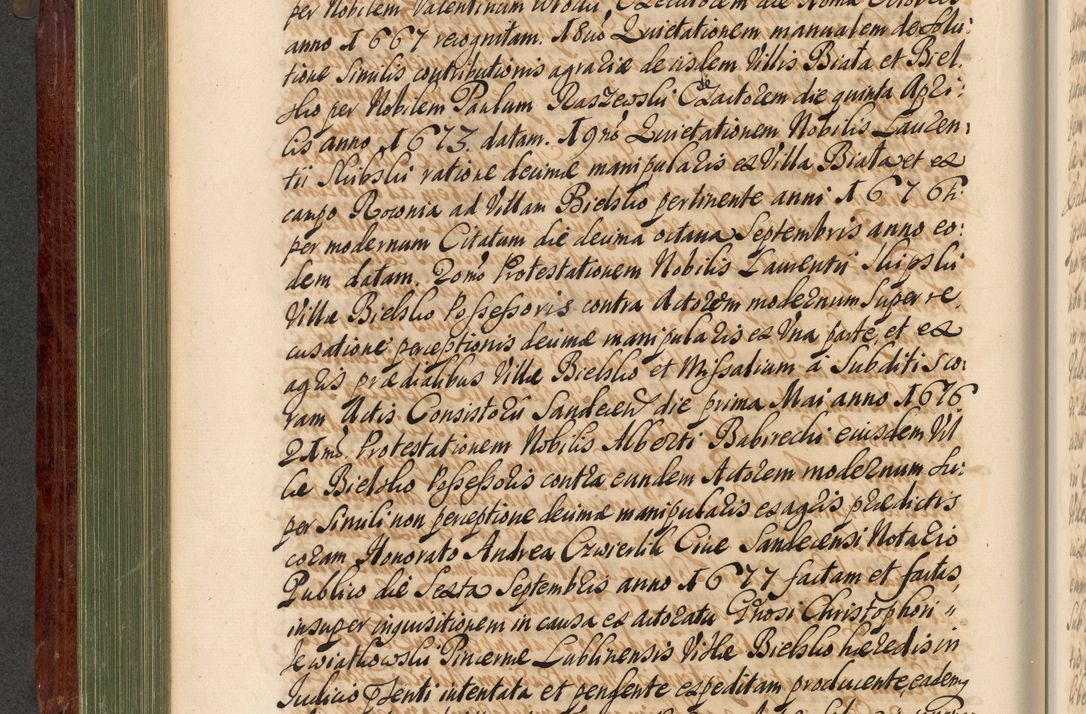 per Nobilem Valentinum
anno 1667 recognitam. 18uo Quietationem manualem de solu:
tione similis contributionis agrariæ de iisdem Villis Biała et Biel
sko per Nobilem Paulum Raszewski Exactorem die quinta Apri:
lis anno 1673. datam. 19no Quietationem Nobilis Lauren,
tii Skibski ratione decimæ manipularis ex Villa Biała et ex
campo Rownia ad Villam Bielsko pertinente anni 1676ti
per modernum Citatum die decima octaua Septembris anno eo:
dem datam. 20mo Protestationem Nobilis Laurentii Skipski
Villæ Bielsko Possessoris contra Actorem modernum super re
cusatione perceptionis decimæ manipularis ex Una parte, et ex
agris prædialibus Villæ Bielsko et Missalium a Subditis co:
ram Actis Consistorii Sandecen die prima Mai anno 1676
21mo Protestationem Nobilis Alberti Babirecki eiusdem Vil
læ Bielsko Possessoris contra eundem Actorem modernum su:
per simili non perceptione decimæ manipularis ex agris prædictis
coram Honorato Andrea Czwierlik Ciue Sandecensi Notario
Publico die sexta Septembris anno 1677 factam et factas,
insuper inquisitionem in causa ex actoratu Gnosi Christophori
Pincernæ Lublinensis Villæ Bielsko hæredis in
Judicio Psenti intentata et pendente expeditam producente, eademq